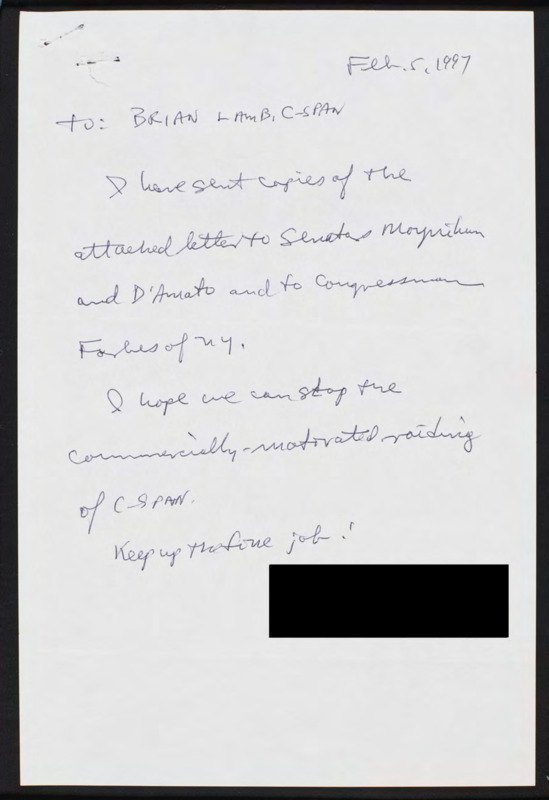 Feb. 5, 1997
To: BRIAN LAMB, C-SPAN
I have sent copies of the
attached letter to Senators Moynihan
and D'Amato and to Congressman
Forbes of NY.
I hope we can stop the
commercially-motivated raiding
of C-SPAN.
Keep up the fine job!